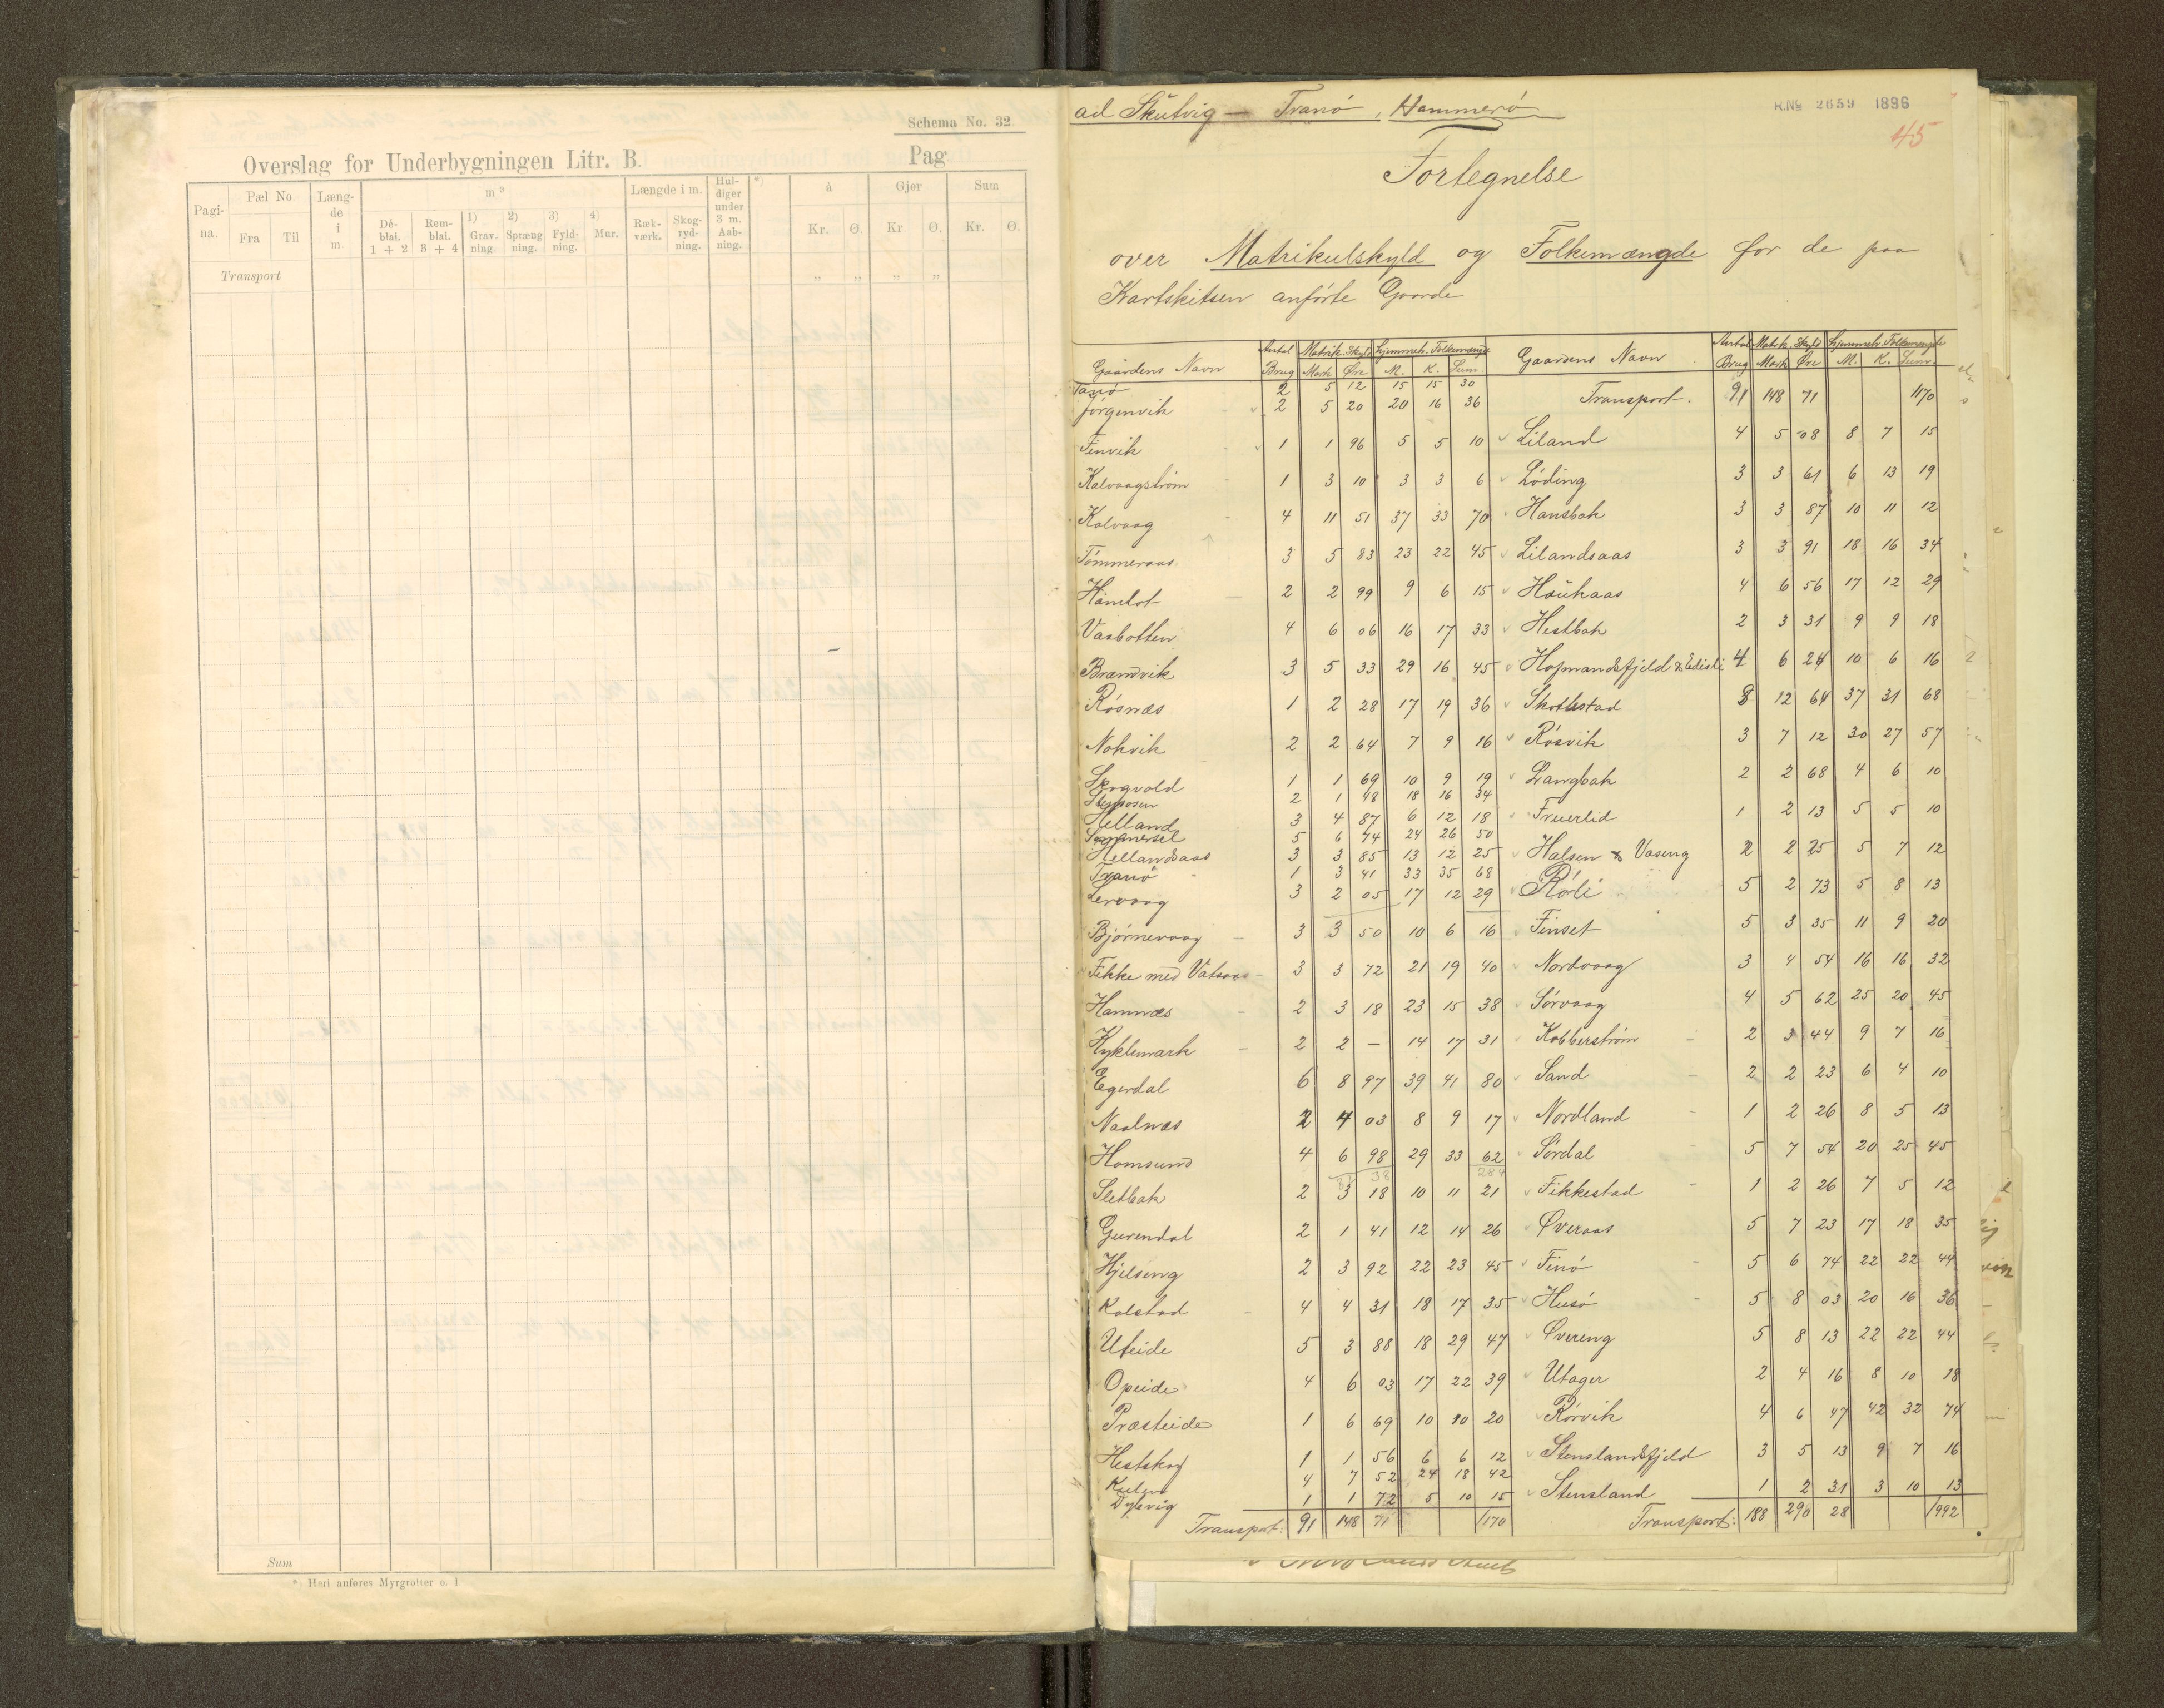 Schema No. 32
Overslag for Underbygningen Litr. B.
Pag
Pagina. Pæl No Længde i m. m³ Længde i m. Huldiger under 3 m. Aabning. *) à Gjør Sum
Fra Til Déblai. 1 + 2 Remblai. 3 + 4 1) Gravning. 2) Sprængning. 3) Fyldning. 4) Mur. Rækværk. Skogrydning. Kr. Ø. Kr Ø. Kr. Ø.
Transport „ „ „ „
Sum
*) Heri anføres Myrgrøfter o. l
ad Skutvig — Tranø, Hammerø
R.No 2659 1896
45
Fortegnelse
over Matrikulskyld og Folkemængde for de paa
Kartskitsen anførte Gaarde
Gaardens Navn Antal Brug Matrik. Skyld Mark Øre Hjemmeh. Folkemængde M. K. Sum.
Tanø 2 5 12 15 15 30
Jørgenvik 2 5 20 20 16 36
Finvik 1 1 96 5 5 10
Kalvaagstrøm 1 3 10 3 3 6
Kalvaag 4 11 51 37 33 70
Tømmeraas 3 5 83 23 22 45
Hamlot 2 2 99 9 6 15
Vasbotten 4 6 06 16 17 33
Brandvik 3 5 33 29 16 45
Røsnæs 1 2 28 17 19 36
Nokvik 2 2 64 7 9 16
Skogvold 1 1 69 10 9 19
2 1 48 18 16 34
Helland 3 4 87 6 12 18
Sommersel 5 6 74 24 26 50
Hellandsaas 3 3 85 13 12 25
Tranø 1 3 41 33 35 68
Lervaag 3 2 05 17 12 29
Bjørnevaag 3 3 50 10 6 16
Fikke med Vatsaas 3 3 72 21 19 40
Hamnæs 2 3 18 23 15 38
Kyklemark 2 2 — 14 17 31
Egerdal 6 8 97 39 41 80
Naalnæs 2 4 03 8 9 17
Homsund 4 6 98 29 33 62
Sletbak 2 3 18 10 11 21
Gurendal 2 1 41 12 14 26
Hjelseng 2 3 92 22 23 45
Kalstad 4 4 31 18 17 35
Uteide 5 3 88 18 29 47
Opeide 4 6 03 17 22 39
Præsteide 1 6 69 10 10 20
Hestskog 1 1 56 6 6 12
Kulen 4 7 52 24 18 42
Dypvig 1 1 72 5 10 15
Transport: 91 148 71 1170
Gaardens Navn Antal Brug Matrik. Skyld Mark Øre Hjemmeh. Folkemængde M. K. Sum.
Transport. 91 148 71 1170
Liland 4 5 08 8 7 15
Løding 3 3 61 6 13 19
Hansbak 3 3 87 10 11 12
Lilandsaas 3 3 91 18 16 34
Haukaas 4 6 56 17 12 29
Hestbak 2 3 31 9 9 18
Hopmandsfjeld & Edisli 4 6 24 10 6 16
Skottestad 8 12 64 37 31 68
Røsvik 3 7 12 30 27 57
Langbak 2 2 68 4 6 10
Fruerlid 1 2 13 5 5 10
Halsen & Vaseng 2 2 25 5 7 12
Rørli 5 2 73 5 8 13
Finset 5 3 35 11 9 20
Nordvaag 3 4 54 16 16 32
Sørvaag 4 5 62 25 20 45
Kobberstrøm 2 3 44 9 7 16
Sand 2 2 23 6 4 10
Nordland 1 2 26 8 5 13
Sørdal 5 7 54 20 25 45
Fikkestad 1 2 26 7 5 12
Øveraas 5 7 23 17 18 35
Finø 5 6 74 22 22 44
Husø 5 8 03 20 16 36
Øvereng 5 8 13 22 22 44
Utager 2 4 16 8 10 18
Rørvik 4 6 47 42 32 74
Stenslandsfjeld 3 5 13 9 7 16
Stensland 1 2 31 3 10 13
Transport: 188 290 28 1992